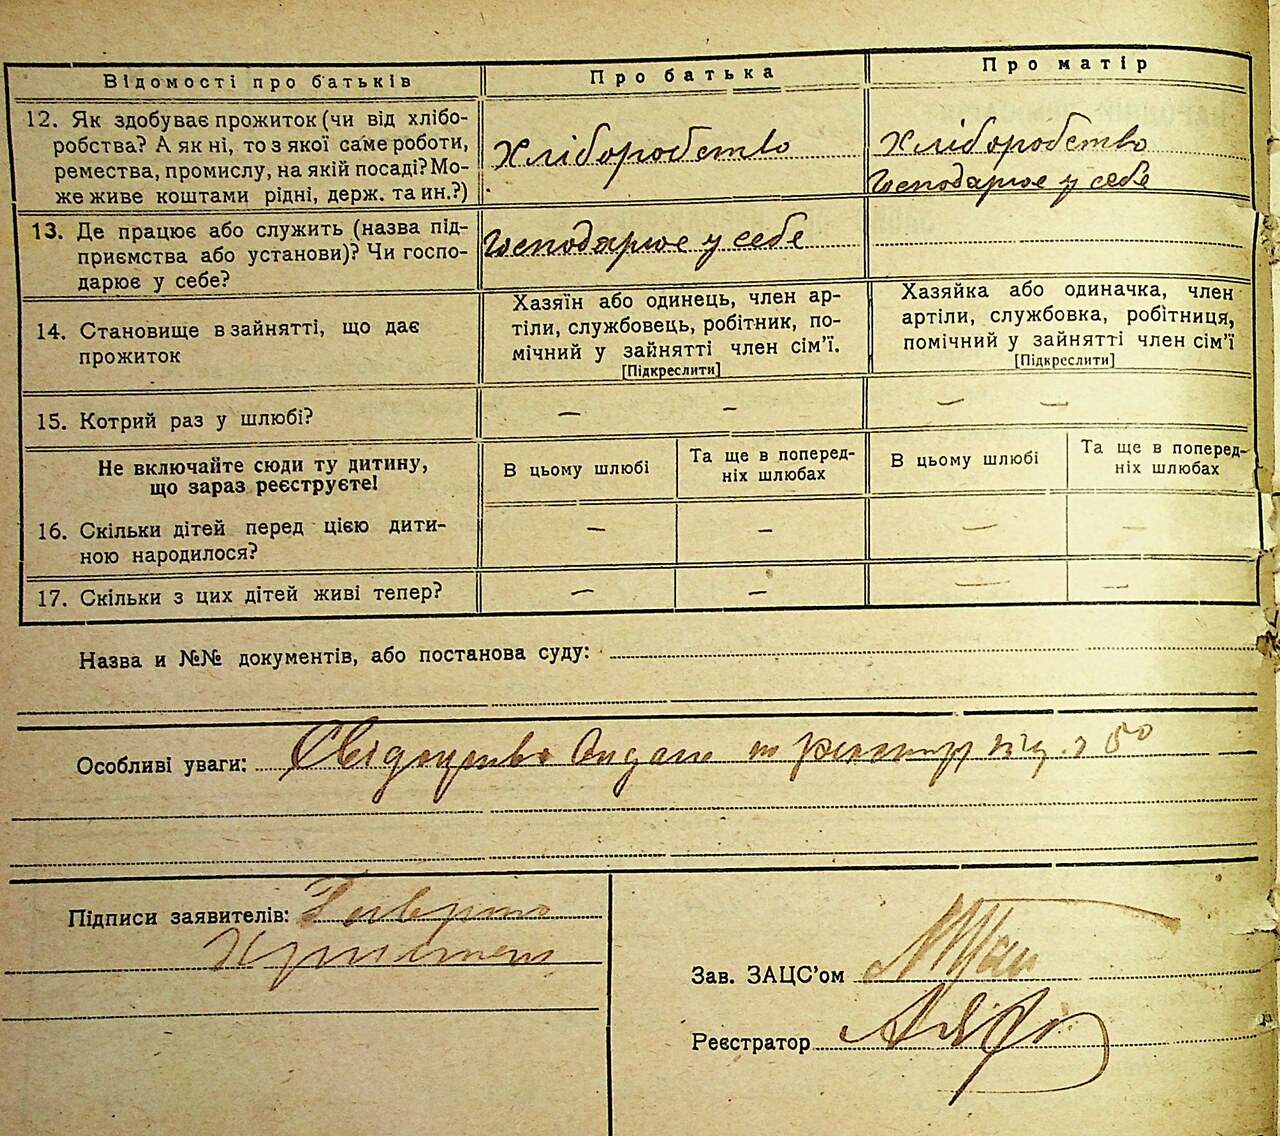 Відомості про батьків
Про батька
Про матір
12. Як здобуває прожиток (чи від хлібо-
робства? А як ні, то з якої саме роботи,
ремества, промислу, на якій посаді? Мо-
же живе коштами рідні, держ. та ин.?)
Хліборобство
Хліборобство
Господарює у себе
13. Де працює або служить (назва під-
приємства або установи)? Чи госпо-
дарює у себе?
Господарює у себе
14. Становище в зайнятті, що дає
прожиток
Хазяїн або одинець, член ар-
тіли, службовець, робітник, по-
мічний у зайнятті член сім’ї.
[Підкреслити]
Хазяйка або одиначка, член
артіли, службовка, робітниця,
помічний у зайнятті член сім’ї
[Підкреслити]
15. Котрий раз у шлюбі?
— —
— —
Не включайте сюди ту дитину,
що зараз реєструєте!
В цьому шлюбі
Та ще в поперед-
ніх шлюбах
В цьому шлюбі
Та ще в поперед-
ніх шлюбах
16. Скільки дітей перед цією дити-
ною народилося?
— — — —
17. Скільки з цих дітей живі тепер?
— — — —
Назва и №№ документів, або постанова суду:
Особливі уваги: Свідоцтво видано
Підписи заявителів:
Зав. ЗАЦС’ом
Реєстратор